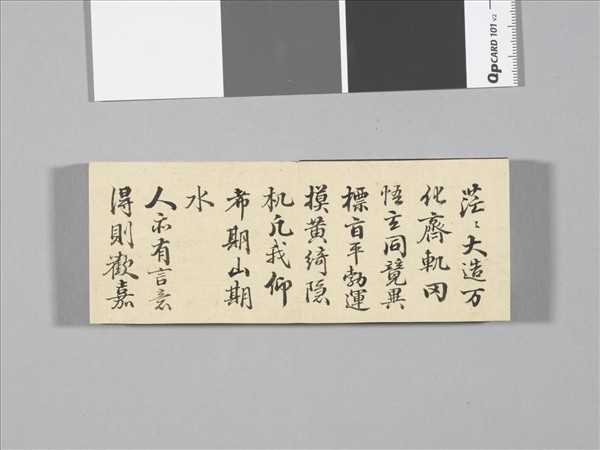 茫〻大造万
化齊軌罔
悟玄同竟異
標旨平勃運
摸黄綺隠
机凡我仰
希期山期
水
人亦有言意
得則歡嘉
QpCARD 101 v2